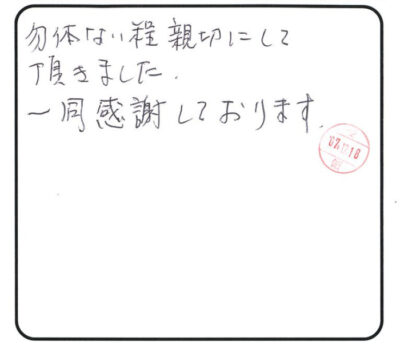 勿体ない程親切にして
頂きました.
一同感謝しております.